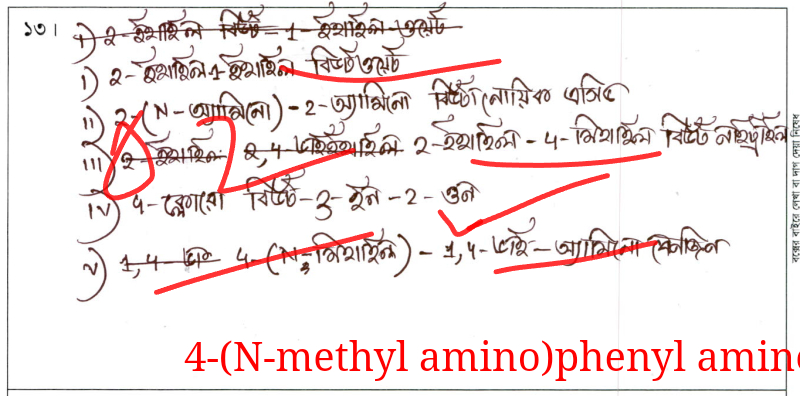 ১৩। i) ২-ইথাইল বিউট = 1 - ইথাইল-ওয়েট
i) ২-ইথাইল 1-ইথাইল বিউটওয়েট
ii) 2-(N-অ্যামিনো)-2-অ্যামিনো বিউটানোয়িক এসিড
iii) ২-ইথাইল ২,4-ডাইইথাইল 2-ইথাইল-4-মিথাইল বিউট নাইট্রাইল
iv) 4-ক্লোরো বিউট-3-ইন-2-ওন
v) 1,4-ডাই 4-(N-মিথাইল)-1,4-ডাই-অ্যামিনো বেনজিন
4-(N-methyl amino)phenyl amin
বক্সের বাইরে লেখা বা দাগ দেয়া নিষেধ